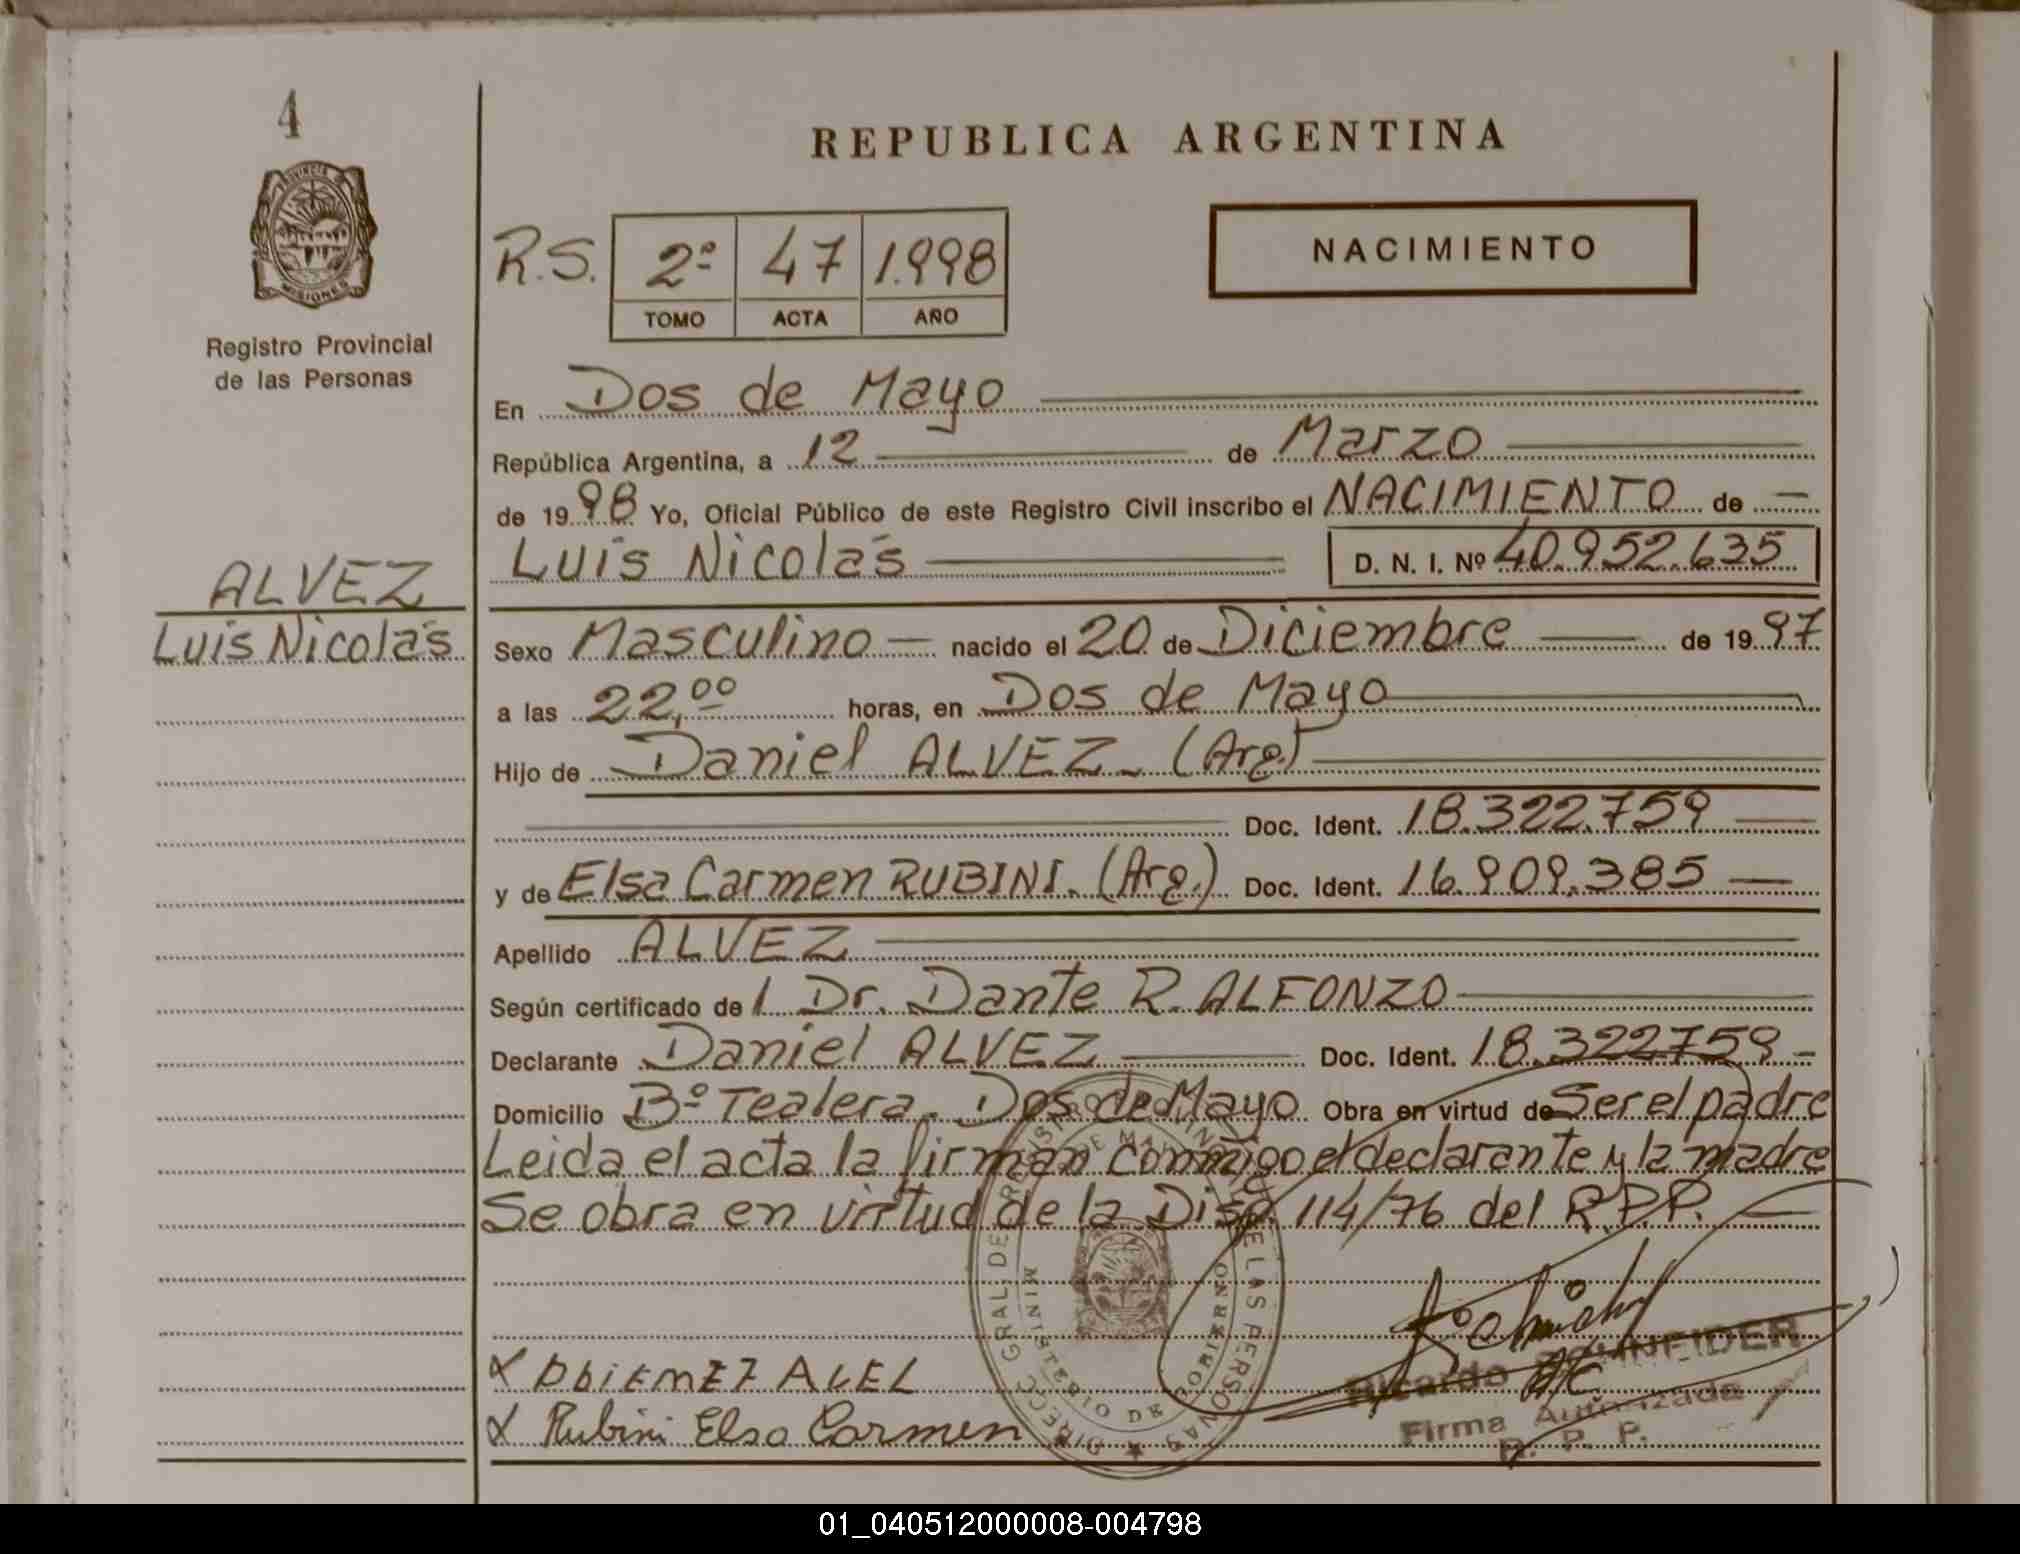 4
PROVINCIA DE
MISIONES
Registro Provincial
de las Personas
ALVEZ
Luis Nicolás
REPUBLICA ARGENTINA
R.S. 2º 47 1.998
TOMO ACTA AÑO
NACIMIENTO
En Dos de Mayo
República Argentina, a 12 de Marzo
de 1998 Yo, Oficial Público de este Registro Civil inscribo el NACIMIENTO de
Luis Nicolás D. N. I. Nº 40.952.635
Sexo Masculino nacido el 20 de Diciembre de 1997
a las 22,00 horas, en Dos de Mayo
Hijo de Daniel ALVEZ. (Arg.)
Doc. Ident. 18.322.759
y de Elsa Carmen RUBINI. (Arg.) Doc. Ident. 16.909.385
Apellido ALVEZ
Según certificado de l Dr. Dante R. ALFONZO
Declarante Daniel ALVEZ Doc. Ident. 18.322759
Domicilio Bº Tealera. Dos de Mayo Obra en virtud de Ser el padre
Leida el acta la firman conmigo el declarante y la madre
Se obra en virtud de la Disp. 114/76 del R.P.P.
DIRECC GRAL. DE REGISTRO DE LAS PERSONAS
MINISTERIO DE GOBIERNO
Rubini Elsa Carmen
Ricardo SCHNEIDER
Firma Autorizada
R. P. P.
01_040512000008-004798